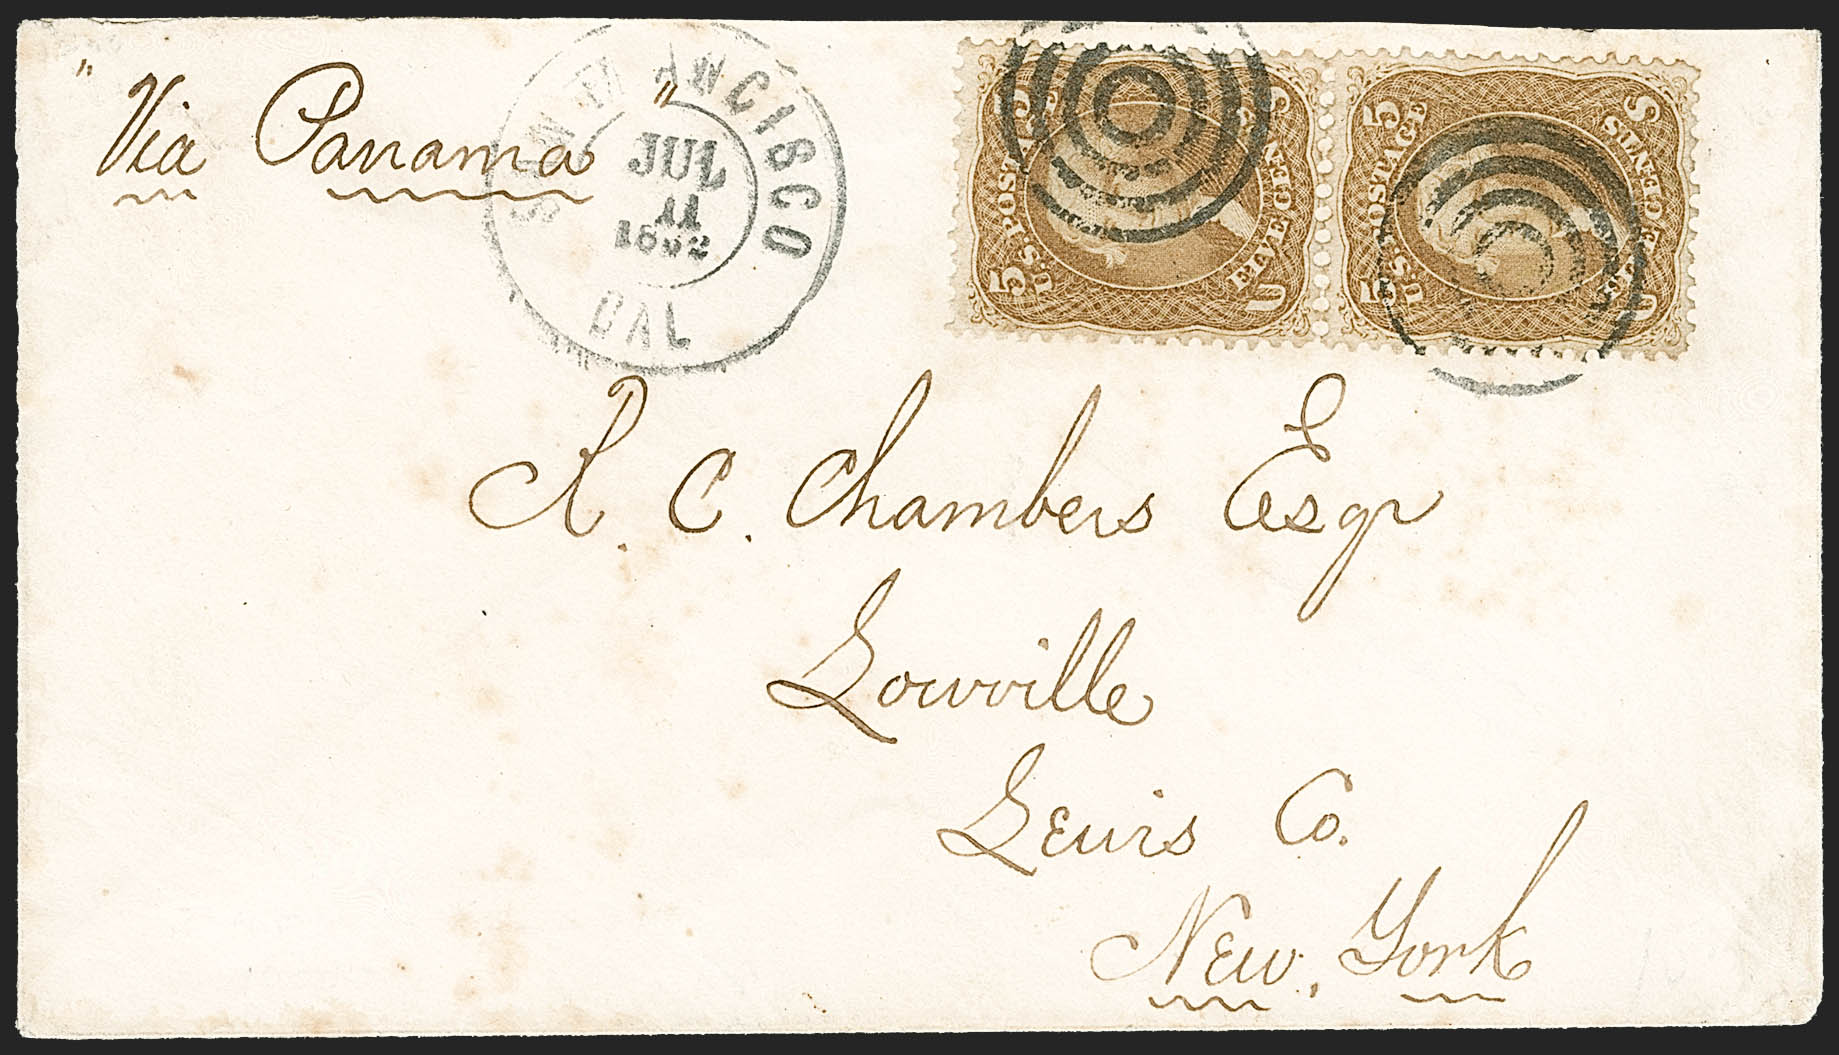 "Via Panama"
SAN FRANCISCO
JUL
11
1862
CAL
5 U.S. POSTAGE 5
FIVE CENTS
U S
5 U.S. POSTAGE 5
FIVE CENTS
U S
R. C. Chambers Esqr
Lowville
Lewis Co.
New York